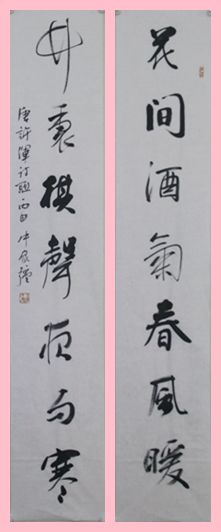 花間酒氣春風暖
竹裏棋聲夜雨寒
唐許渾詩聯